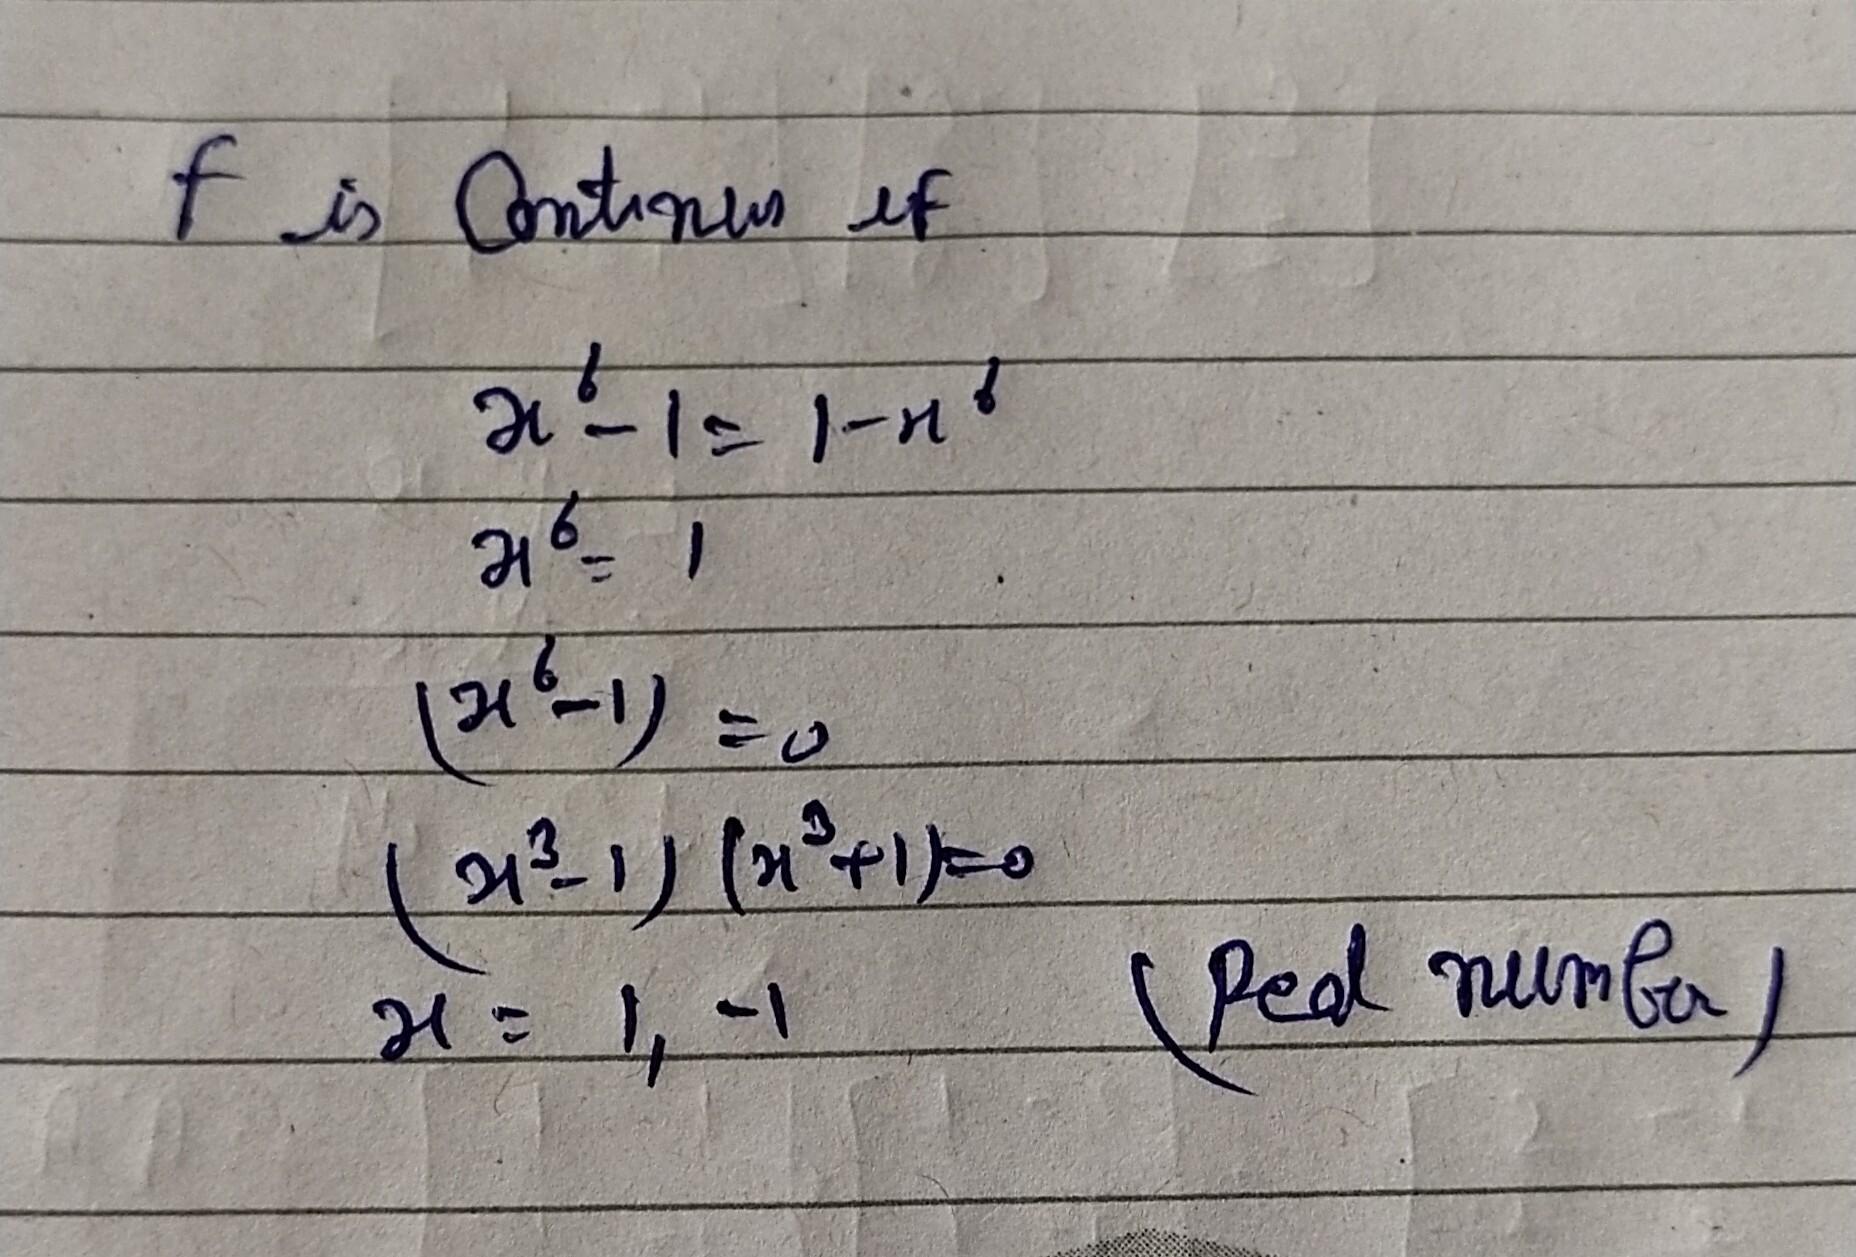 f is Continus if
x⁶-1 = 1-x⁶
x⁶ = 1
(x⁶-1) = 0
(x³-1) (x³+1)=0
x = 1, -1 (Real number)